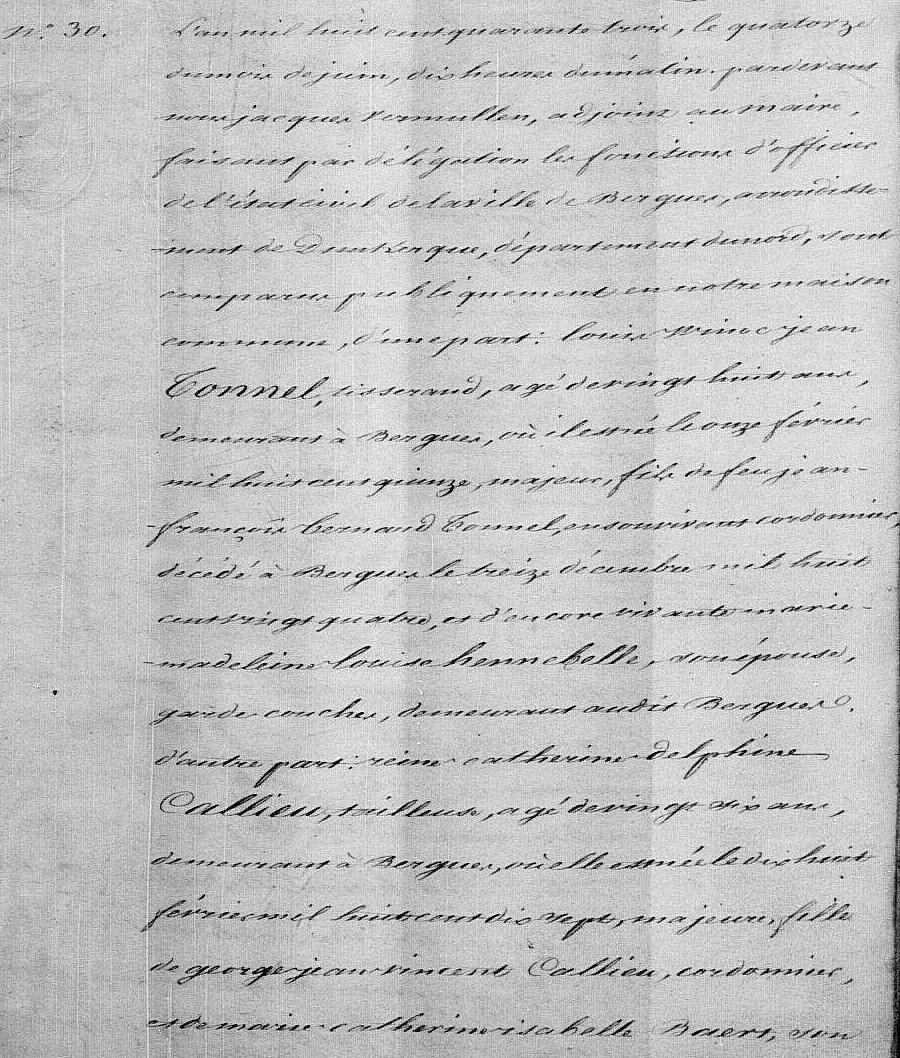 n.° 30.
L'an mil huit cent quarante trois, le quatorze
du mois de juin, dix heures du matin. pardevant
nous jacques Vermullen, adjoint au maire,
faisant par délégation les fonctions d'officier
de l'état civil de la ville de Bergues, arrondisse-
-ment de Dunkerque, département du nord, sont
comparus publiquement en notre maison
commune, d'une part: louis Winoc jean
Tonnel, tisserand, agé de vingt huit ans,
demeurant à Bergues, où il est né le onze février
mil huit cent quinze, majeur, fils de feu jean-
-françois bernard Tonnel, en son vivant cordonnier,
décédé à Bergues le treize décembre mil huit
cent vingt quatre, et d'encore vivante marie-
-madeleine louise hennebelle, son épouse,
garde couches, demeurant audit Bergues.
d'autre part: reine catherine delphine
Callieu, tailleuse, agé de vingt six ans,
demeurant à Bergues, où elle est née le dix huit
février mil huit cent dix sept, majeure, fille
de george jean vincent Callieu, cordonnier,
et de marie catherine isabelle Baert, son